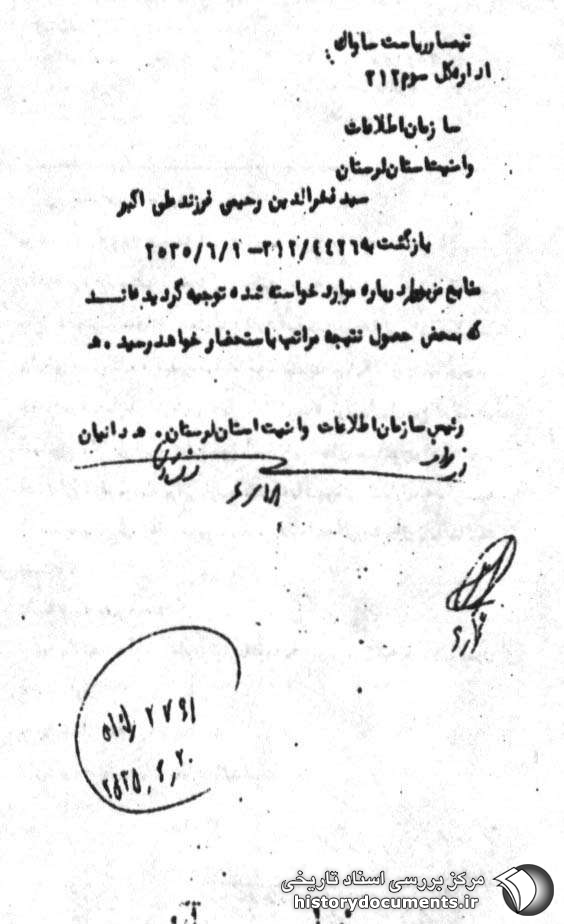 تیمسار ریاست ساواک
اداره کل سوم ۳۱۲
سازمان اطلاعات
و امنیت استان لرستان
سید فخرالدین رحیمی فرزند علی اکبر
بازگشت به ۳۱۲/۴۴۲۶ – ۲۵۳۵/۶/۹
منابع مزبور درباره موارد خواسته شده توجیه گردیده‌اند
که بمحض حصول نتیجه مراتب باستحضار خواهد رسید. ه
رئیس سازمان اطلاعات و امنیت استان لرستان. هـ دانیان
۲۷۹۱
۲۵۳۵,۶,۲۰
مرکز بررسی اسناد تاریخی
historydocuments.ir